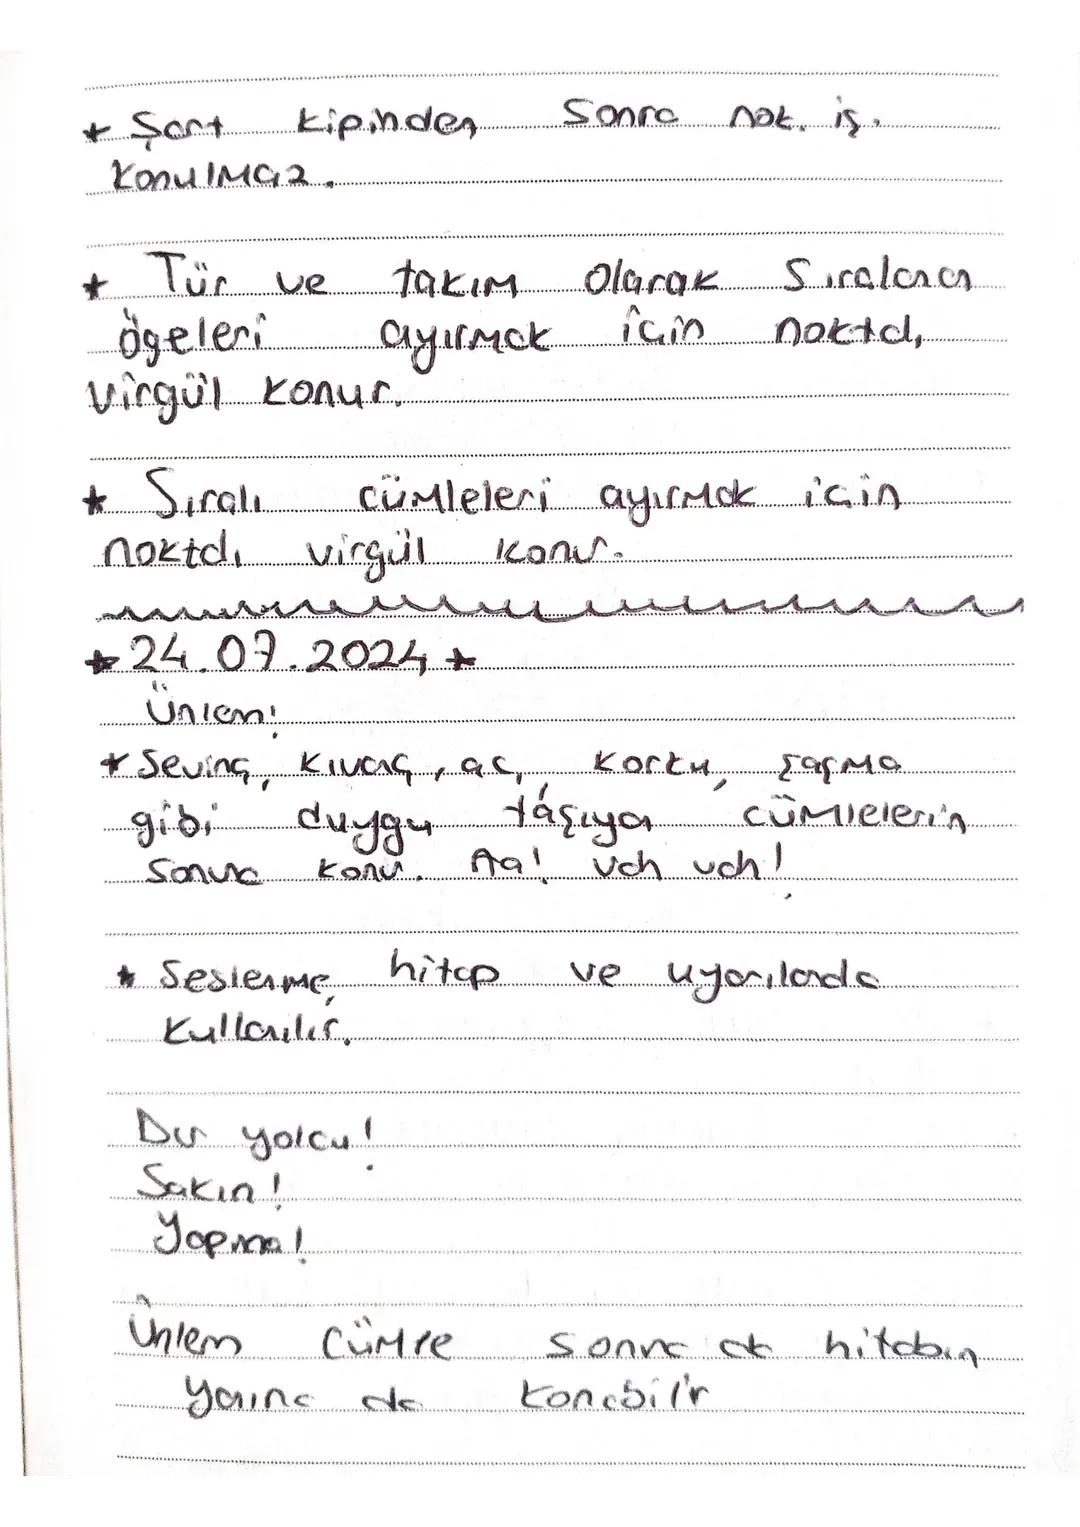 * Şart kipinden sonra nok. iş.
konulmaz.
* Tür ve takım olarak sıralanan
ögeleri ayırmak için noktalı
virgül konur.
* Sıralı cümleleri ayırmak için
noktalı virgül konur.
* 24.07.2024 *
Ünlem!
* Sevinç, kıvanç, acı, korku, şaşma
gibi duygu taşıyan cümlelerin
sonuna konur. Aa! Vah vah!
* Seslenme, hitap ve uyarılarda
kullanılır.
Dur yolcu!
Sakın!
Yapma!
Ünlem cümle sonuna da hitabın
yanına da konabilir